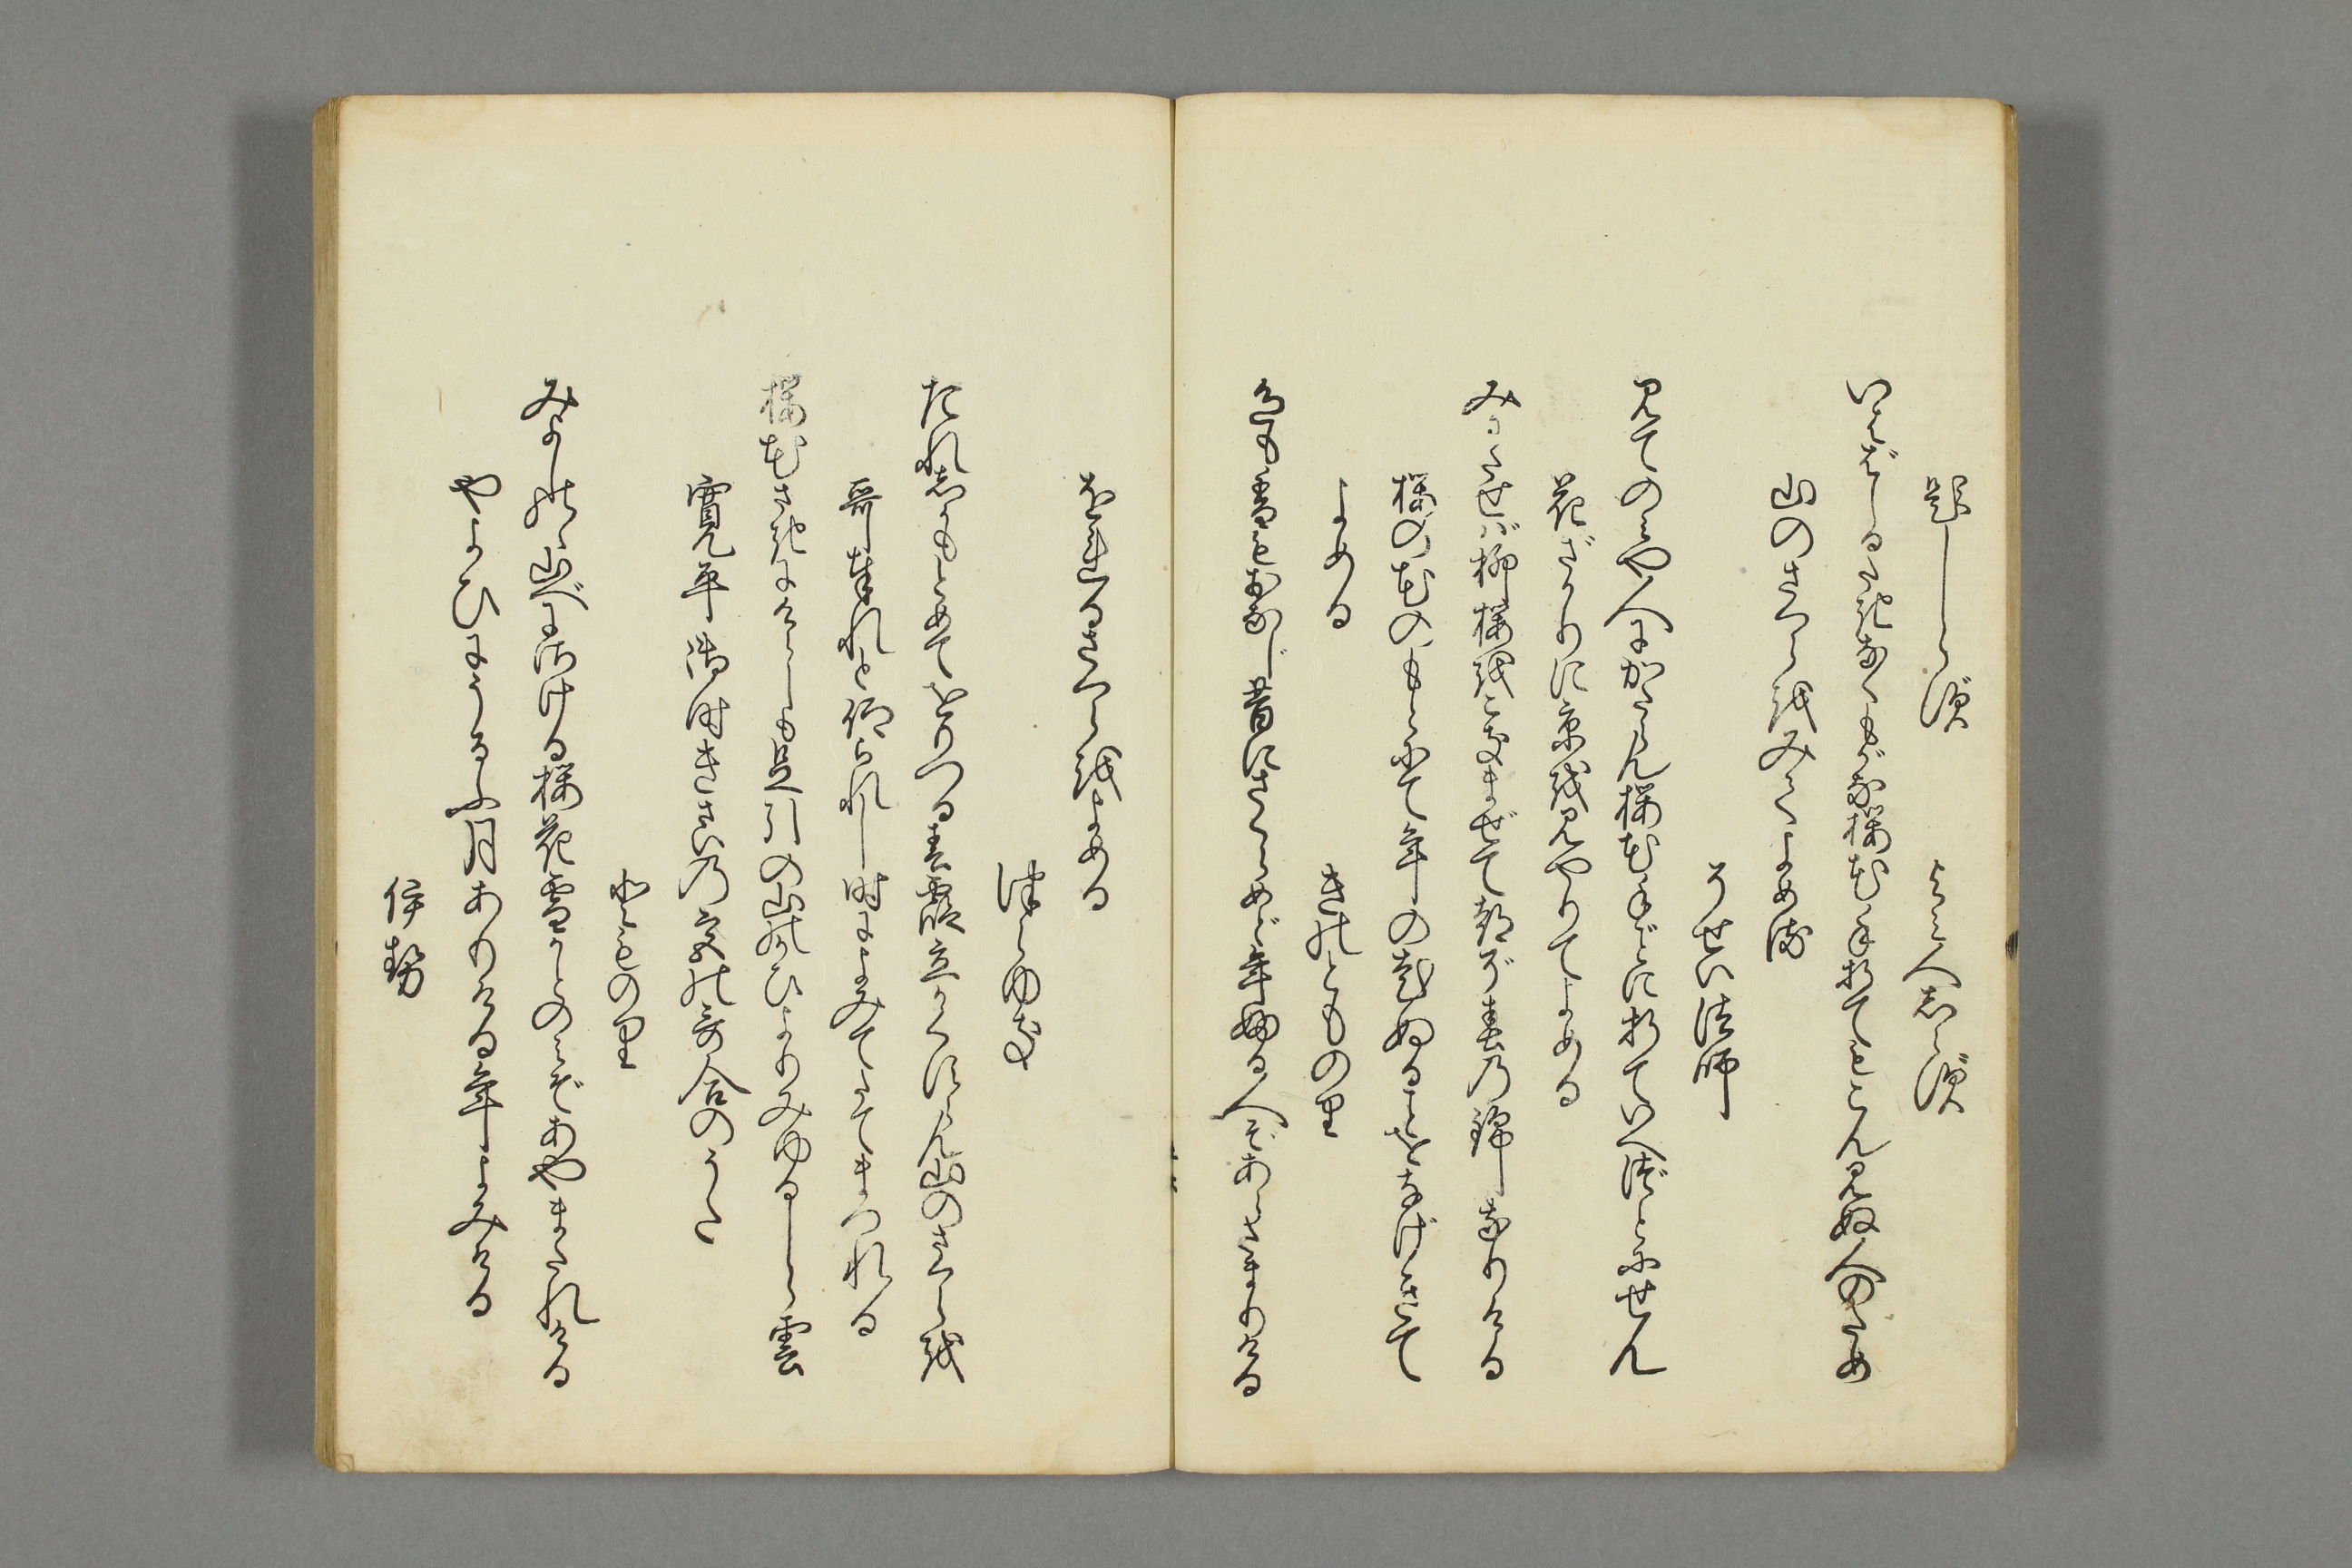 題しらず　よみ人しらず
いしばしるたきなくもがな桜花手折てもこん見ぬ人のため
山のさくらをみてよめる
そせい法師
見てのみや人にかたらん桜花手ごとに折ていへづとにせん
花ざかりに京を見やりてよめる
みわたせば柳桜をこきまぜて都ぞ春の錦なりける
桜の花のもとにて年の老ぬることをなげきて
よめる
きのとものり
色も香もおなじ昔にさくらめど年ふる人ぞあらたまりける
をれるさくらをよめる
つらゆき
たれしかもとめてをりつる春霞立かくすらん山のさくらを
哥奉れと仰られし時によみてたてまつれる
桜花さきにけらしも足引の山のかひよりみゆるしら雲
寛平御時きさいの宮の哥合のうた
とものり
みよしのゝ山べにさける桜花雪かとのみぞあやまたれける
やよひにうるふ月ありける年よみける
伊勢